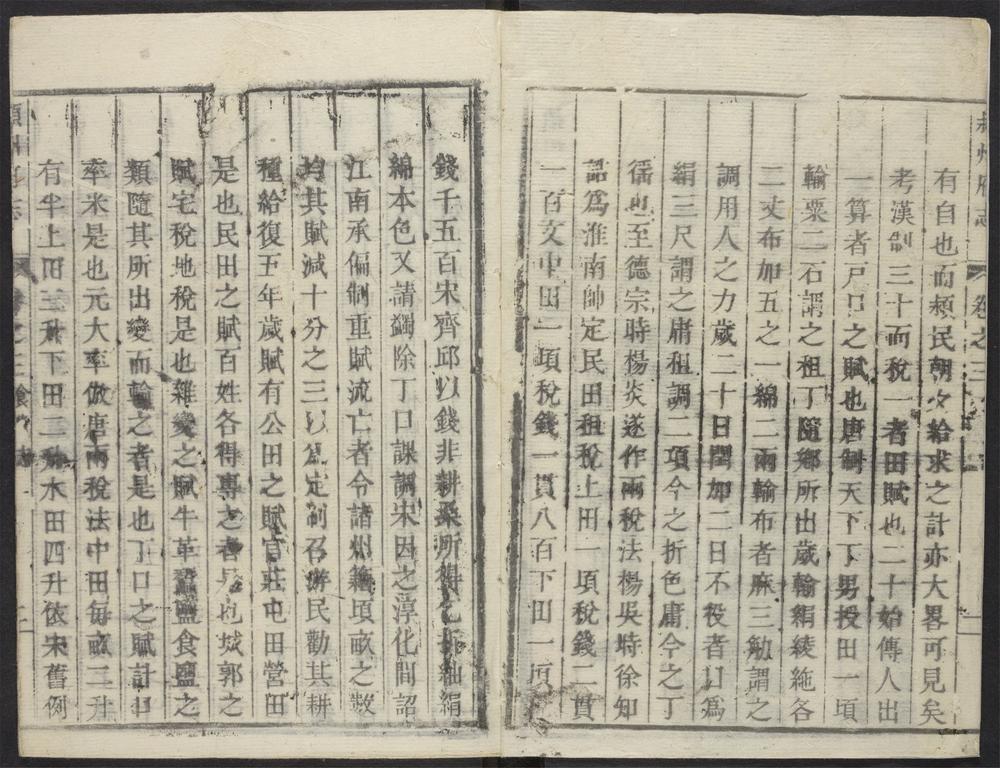 有自也而潁民朝夕給求之計亦大畧可見矣
考漢制三十而稅一者田賦也二十始傳人出
一算者戸口之賦也唐制天下丁男授田一頃
輸粟二石謂之租丁隨鄉所出歲輸絹綾絁各
二丈布加五之一綿二兩輸布者麻三觔謂之
調用人之力歲二十日閏加二日不役者日爲
絹三尺謂之庸租調二項今之折色庸今之丁
徭也至德宗時楊炎遂作兩稅法楊吳時徐知
誥爲淮南帥定民田租稅上田一項稅錢二貫
一百文中田一項稅錢一貫八百下田一頃
錢千五百宋齊邱以錢非耕桑所得乞折紬絹
綿本色又請蠲除丁口課調宋因之淳化間詔
江南承偏制重賦流亡者令諸州籍頃畝之數
均其賦減十分之三以爲定制召游民勸其耕
種給復五年歲賦有公田之賦官莊屯田營田
是也民田之賦百姓各得專之者是也城郭之
賦宅稅地稅是也雜變之賦牛革蠶鹽食鹽之
類隨其所出變而輸之者是也丁口之賦計口
率米是也元大率倣唐兩稅法中田每畝三升
有半上田三升下田二升水田四升依宋舊例
卷之三食